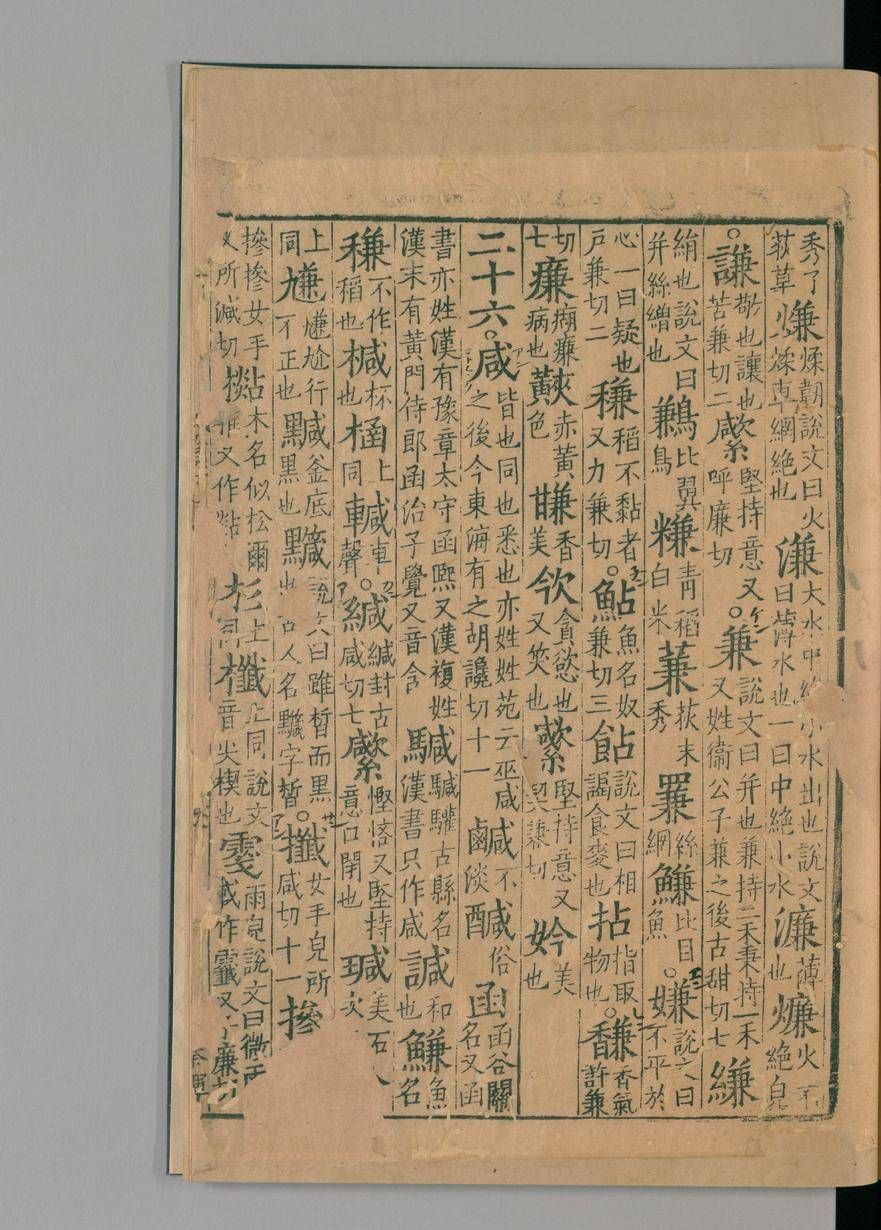 秀了荻草熑煣韌說文曰火煣車網絶也溓大水中絶小水出也說文曰薄水也一曰中絶小水濂薄也燫火不絶皃
。謙敬也讓也苦兼切二堅持意又呼廉切。兼說文曰并也兼持二禾秉持一禾又姓衞公子兼之後古甜切七縑
絹也說文曰并絲繒也鶼比翼鳥䊠青稻白米蒹荻未秀絲網鰜比目魚。嫌說文曰不平於
心一曰疑也戶兼切二稴稻不黏者又力兼切。鮎魚名奴兼切三說文曰相謁食麥也拈指取物也。馦香氣許兼
切七病也赤黃色香美欦貪慾也又笑也堅持意又絜兼切妗美也
二十六。咸皆也同也悉也亦姓姓苑云巫咸之後今東海有之胡讒切十一鹹不淡醎俗函函谷關名又函
書亦姓漢有豫章太守函熙又漢複姓漢末有黃門侍郎函治子覺又音含古縣名漢書只作咸諴和也鰜魚名
稴不作稻也椷杯也上同車聲。緘緘封古咸切七慳悋又堅持意口閉也瑊美石次
上同尲尲尬行不正也釜底黑也黬說文曰雖晳而黑也古人名黬字晳。攕女手皃所咸切十一摻
摻摻女手又所減切木名似松爾雅又作杉上同櫼上同說文音尖楔也雨皃說文曰微雨或作又子廉切